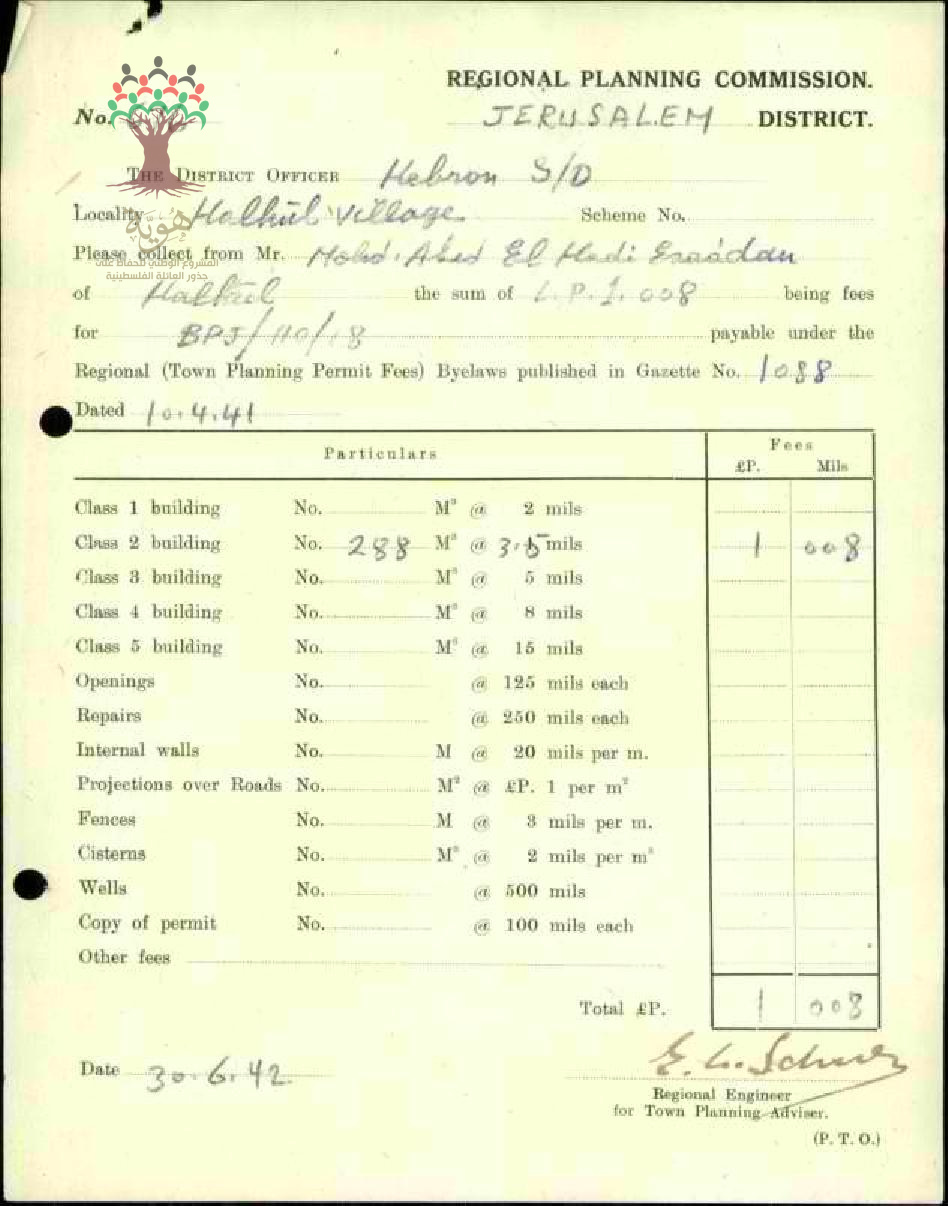 REGIONAL PLANNING COMMISSION.
No. JERUSALEM DISTRICT.
THE DISTRICT OFFICER Hebron S/D
Locality Halhūl Village Scheme No.
Please collect from Mr. Mohd. Abed El Hadi Esaádan
هوية
المشروع الوطني للحفاظ على
جذور العائلة الفلسطينية
of Halhūl the sum of L.P.1.008 being fees
for BPJ/110/18 payable under the
Regional (Town Planning Permit Fees) Byelaws published in Gazette No. 1088
Dated 10.4.41
Particulars Fees
£P. Mils
Class 1 building No. M³ @ 2 mils
Class 2 building No. 288 M³ @ 3.5 mils 1 008
Class 3 building No. M³ @ 5 mils
Class 4 building No. M³ @ 8 mils
Class 5 building No. M³ @ 15 mils
Openings No. @ 125 mils each
Repairs No. @ 250 mils each
Internal walls No. M @ 20 mils per m.
Projections over Roads No. M² @ £P. 1 per m²
Fences No. M @ 3 mils per m.
Cisterns No. M³ @ 2 mils per m³
Wells No. @ 500 mils
Copy of permit No. @ 100 mils each
Other fees
Total £P. 1 008
Date 30.6.42
Regional Engineer
for Town Planning Adviser.
(P. T. O.)